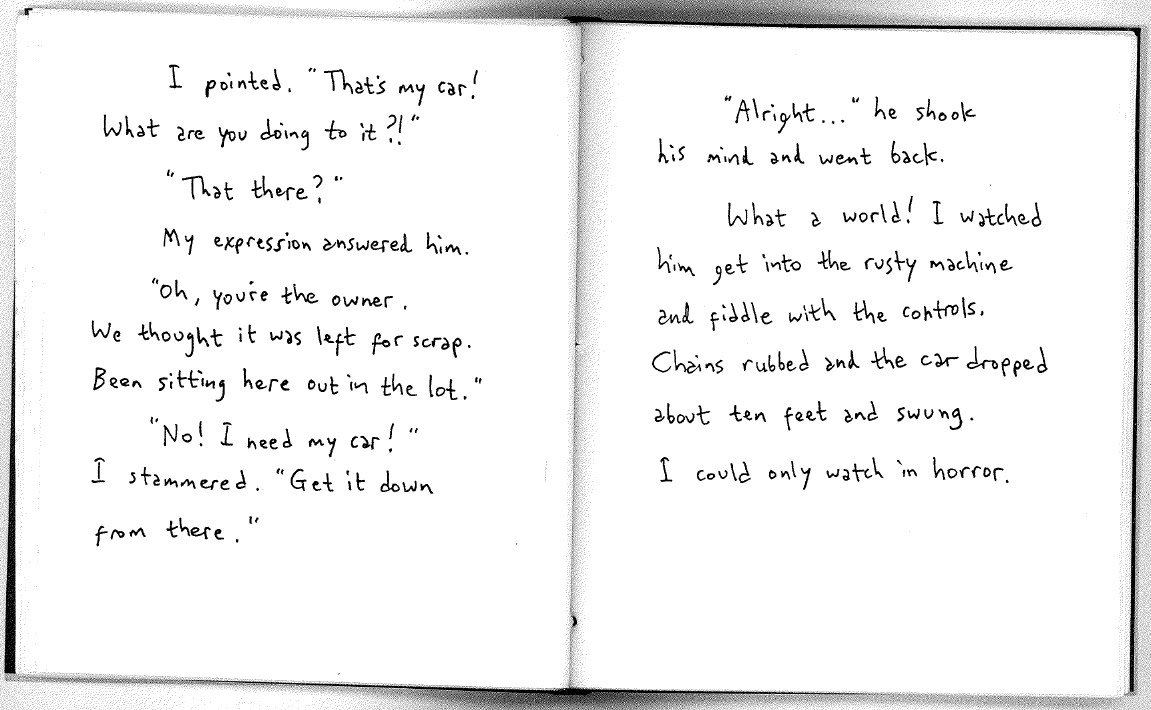 I pointed. "That's my car!
What are you doing to it?!"
"That there?"
My expression answered him.
"Oh, you're the owner.
We thought it was left for scrap.
Been sitting here out in the lot."
"No! I need my car!"
I stammered. "Get it down
from there."
"Alright..." he shook
his mind and went back.
What a world! I watched
him get into the rusty machine
and fiddle with the controls.
Chains rubbed and the car dropped
about ten feet and swung.
I could only watch in horror.